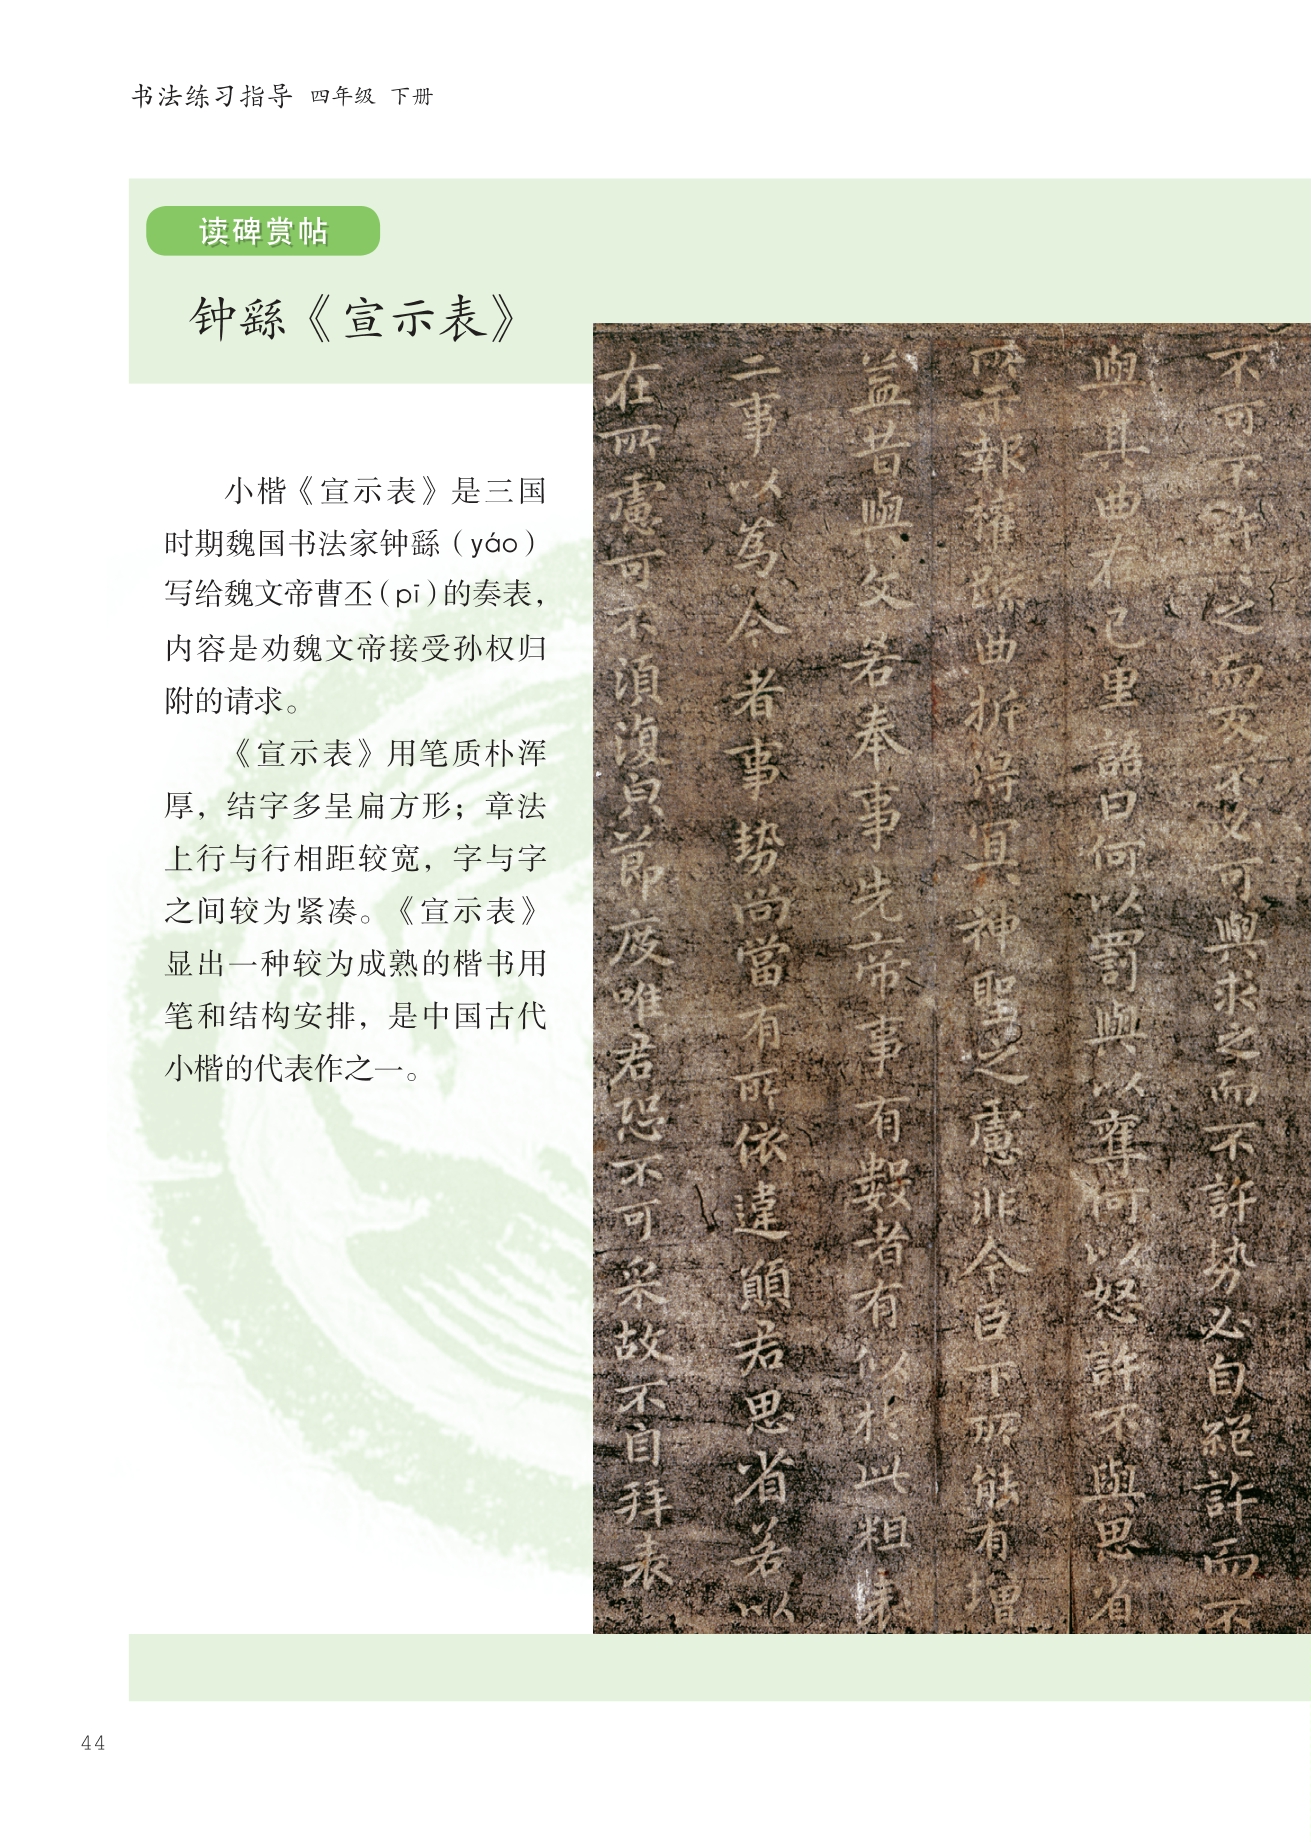 书法练习指导 四年级 下册
读碑赏帖
钟繇《宣示表》
小楷《宣示表》是三国
时期魏国书法家钟繇（yáo）
写给魏文帝曹丕（pī）的奏表，
内容是劝魏文帝接受孙权归
附的请求。
《宣示表》用笔质朴浑
厚，结字多呈扁方形；章法
上行与行相距较宽，字与字
之间较为紧凑。《宣示表》
显出一种较为成熟的楷书用
笔和结构安排，是中国古代
小楷的代表作之一。
不可不許之而反不必可與求之而不許势必自絕許而不
與其曲在己里語曰何以罰與以奪何以怒許不與思省
所示報權疏曲折得冥神聖之慮非今臣下所能有增
益昔與文若奉事先帝事有數者有以於此粗表
二事以為今者事势尚當有所依違願君思省若以
在所慮可不須復皃節度唯君恐不可采故不自拜表
44